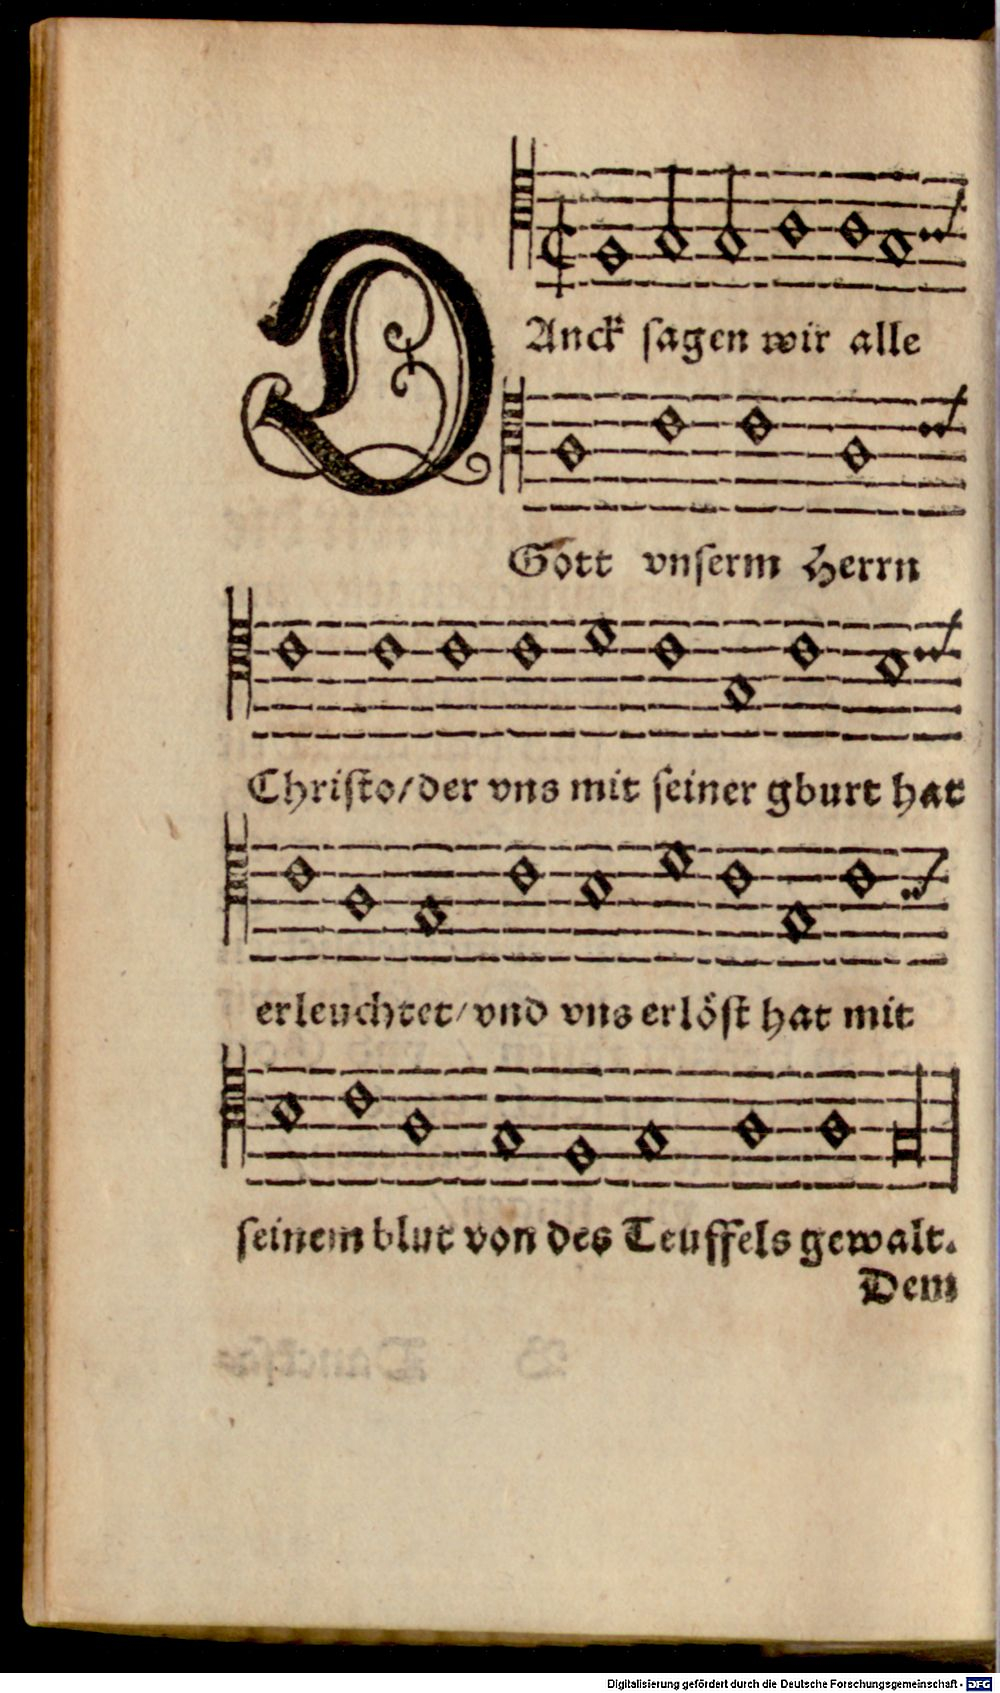 DAnck sagen wir alle
Gott vnserm Herrn
Christo/der vns mit seiner gburt hat
erleuchtet/vnd vns erlöst hat mit
seinem blut von des Teuffels gewalt.
Dem
Digitalisierung gefördert durch die Deutsche Forschungsgemeinschaft - DFG